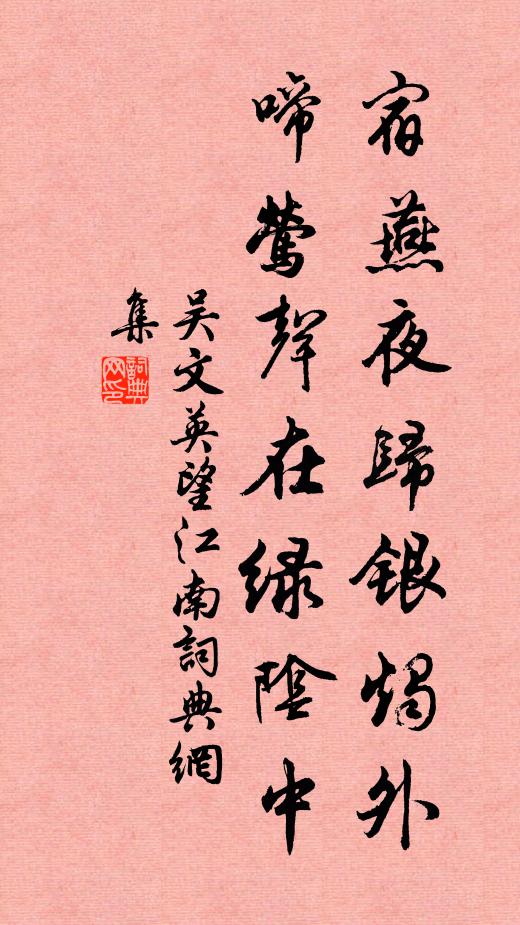 宿燕夜歸銀燭外
啼鶯聲在綠陰中
吴文英望江南詞典網
集
詞典网印